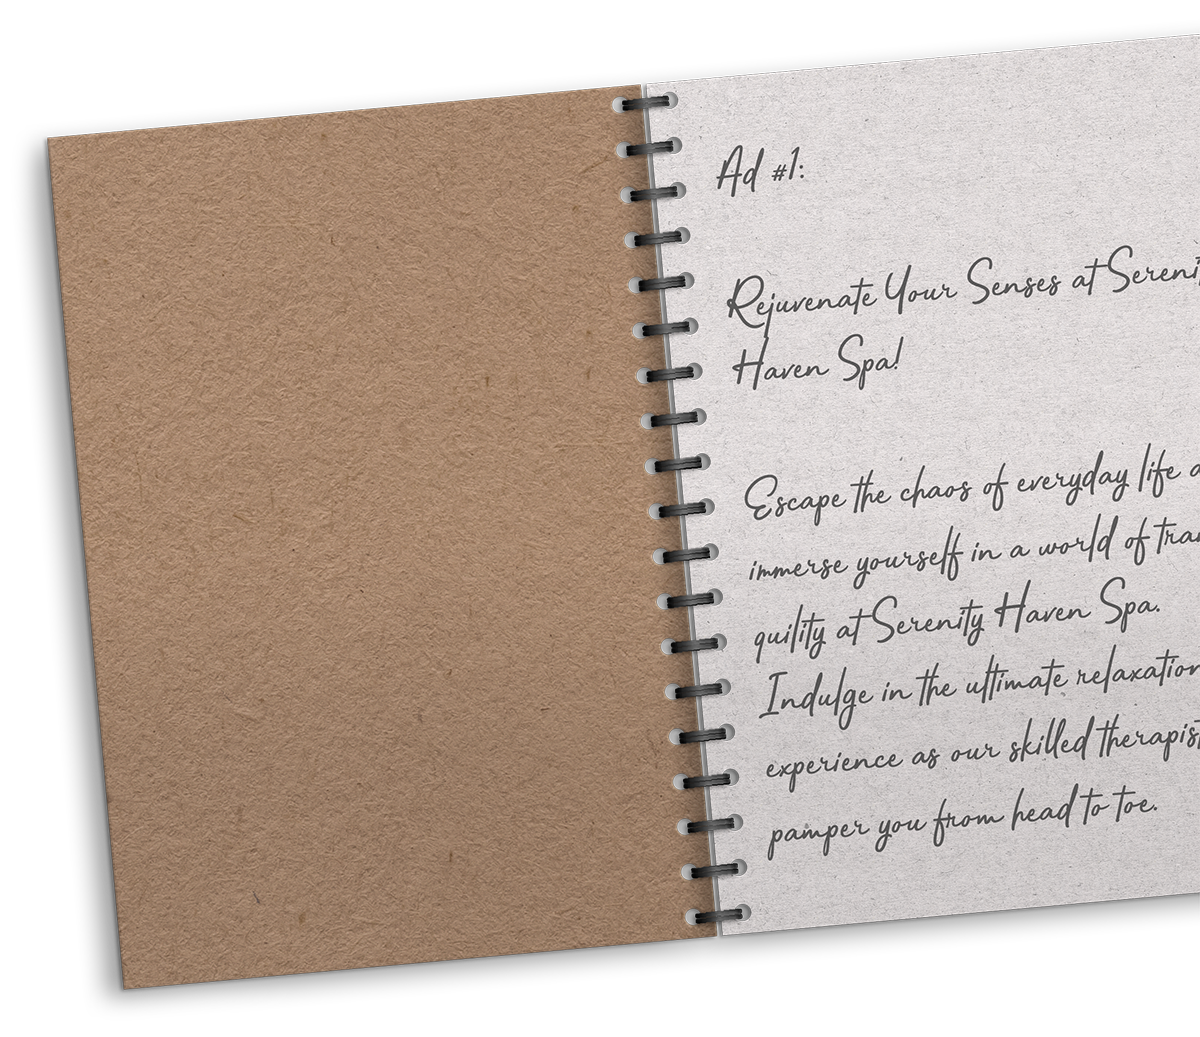 Ad #1:
Rejuvenate Your Senses at Serenit
Haven Spa!
Escape the chaos of everyday life a
immerse yourself in a world of tran
quility at Serenity Haven Spa.
Indulge in the ultimate relaxation
experience as our skilled therapist
pamper you from head to toe.